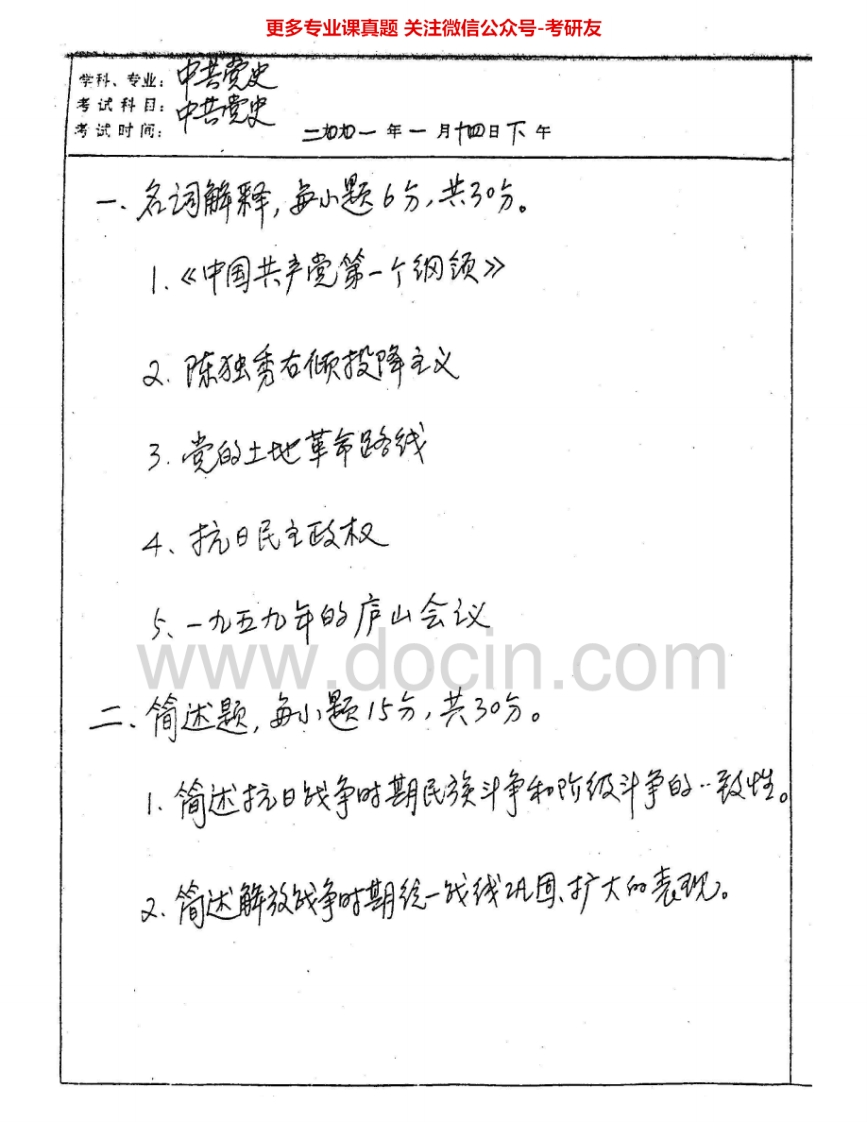 更多专业课真题 关注微信公众号-考研友
学科、专业：中共党史
考试科目：中共党史
考试时间：二〇〇一年一月十四日下午
一、名词解释，每小题6分，共30分。
1.《中国共产党第一个纲领》
2. 陈独秀右倾投降主义
3. 党的土地革命路线
4、抗日民主政权
5、一九五九年的庐山会议
www.docin.com
二、简述题，每小题15分，共30分。
1. 简述抗日战争时期民族斗争和阶级斗争的一致性。
2. 简述解放战争时期统一战线巩固、扩大的表现。